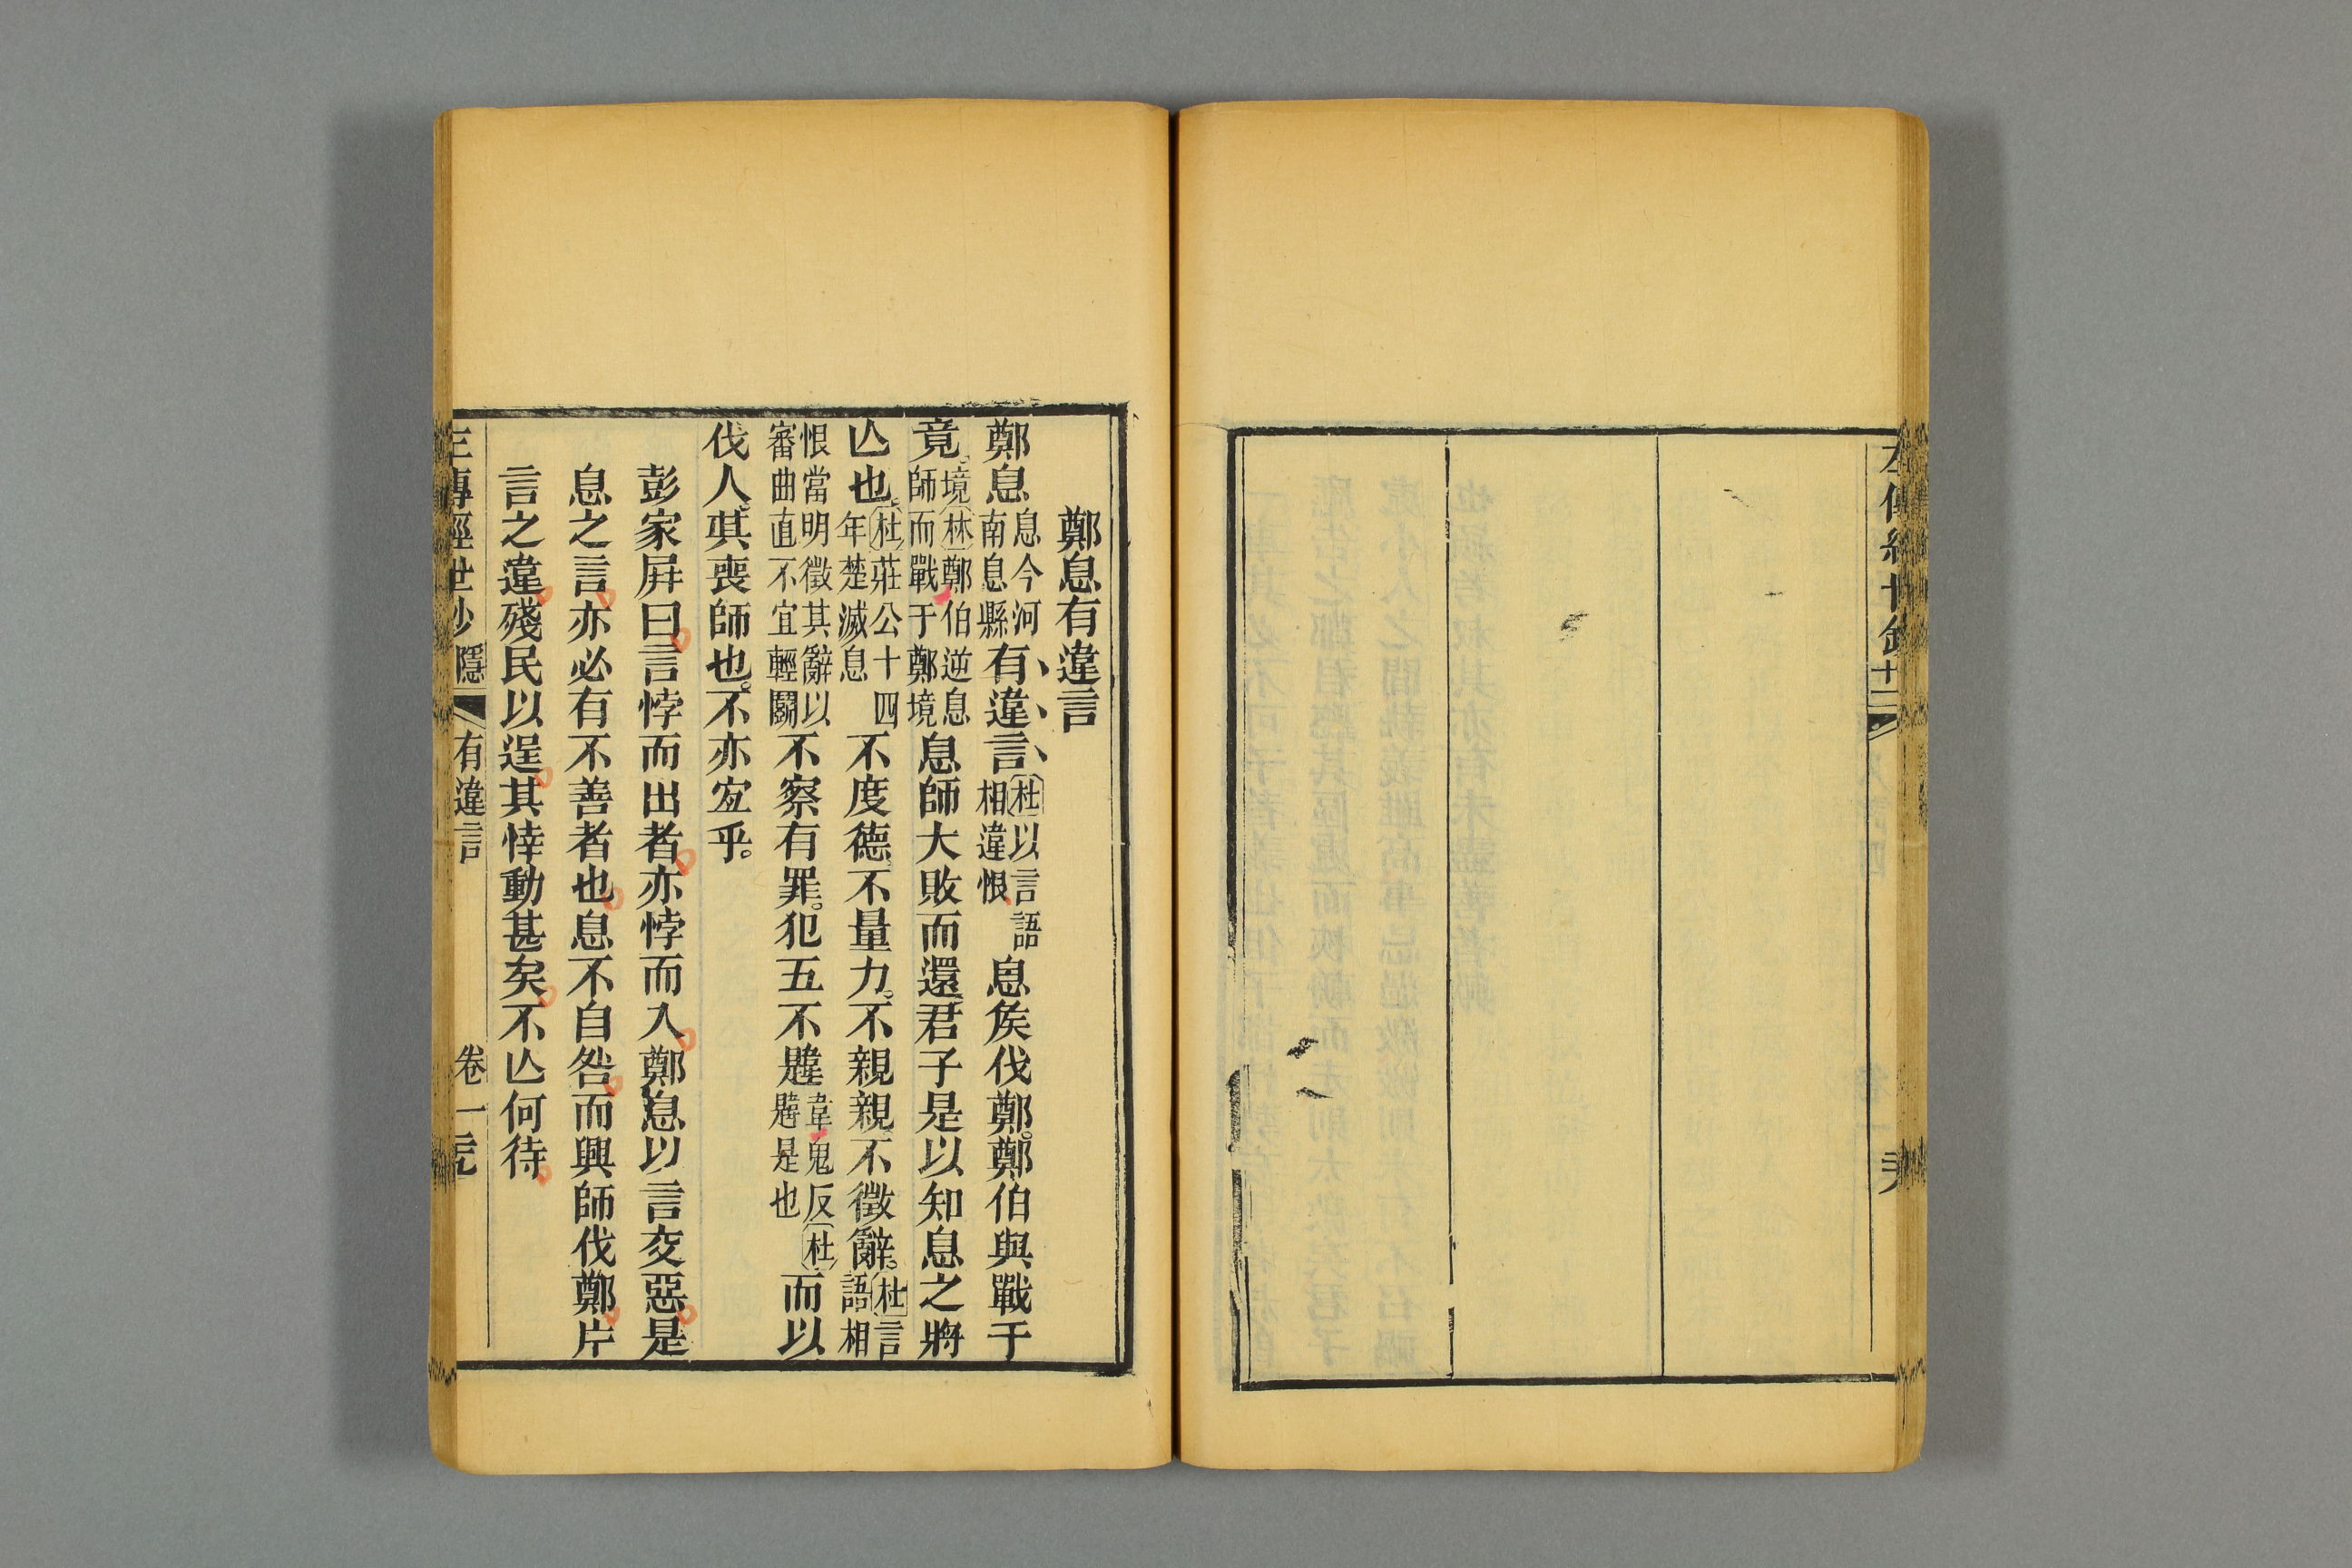 鄭息有違言
鄭息息今河南息縣有違言杜以言語相違恨息矦伐鄭鄭伯與戰于
竟境林鄭伯逆息師而戰于鄭境息師大敗而還君子是以知息之將
亾也杜莊公十四年楚滅息不度德不量力不親親不徵辭杜言語相
恨當明徵其辭以審曲直不宜輕鬭不察有罪犯五不韙韋鬼反杜韙是也而以
伐人其喪師也不亦宜乎
彭家屛曰言悖而出者亦悖而入鄭息以言交惡是
息之言亦必有不善者也息不自咎而興師伐鄭片
言之違殘民以逞其悻動甚矣不亾何待
傳經世鈔 隱 有違言 卷一